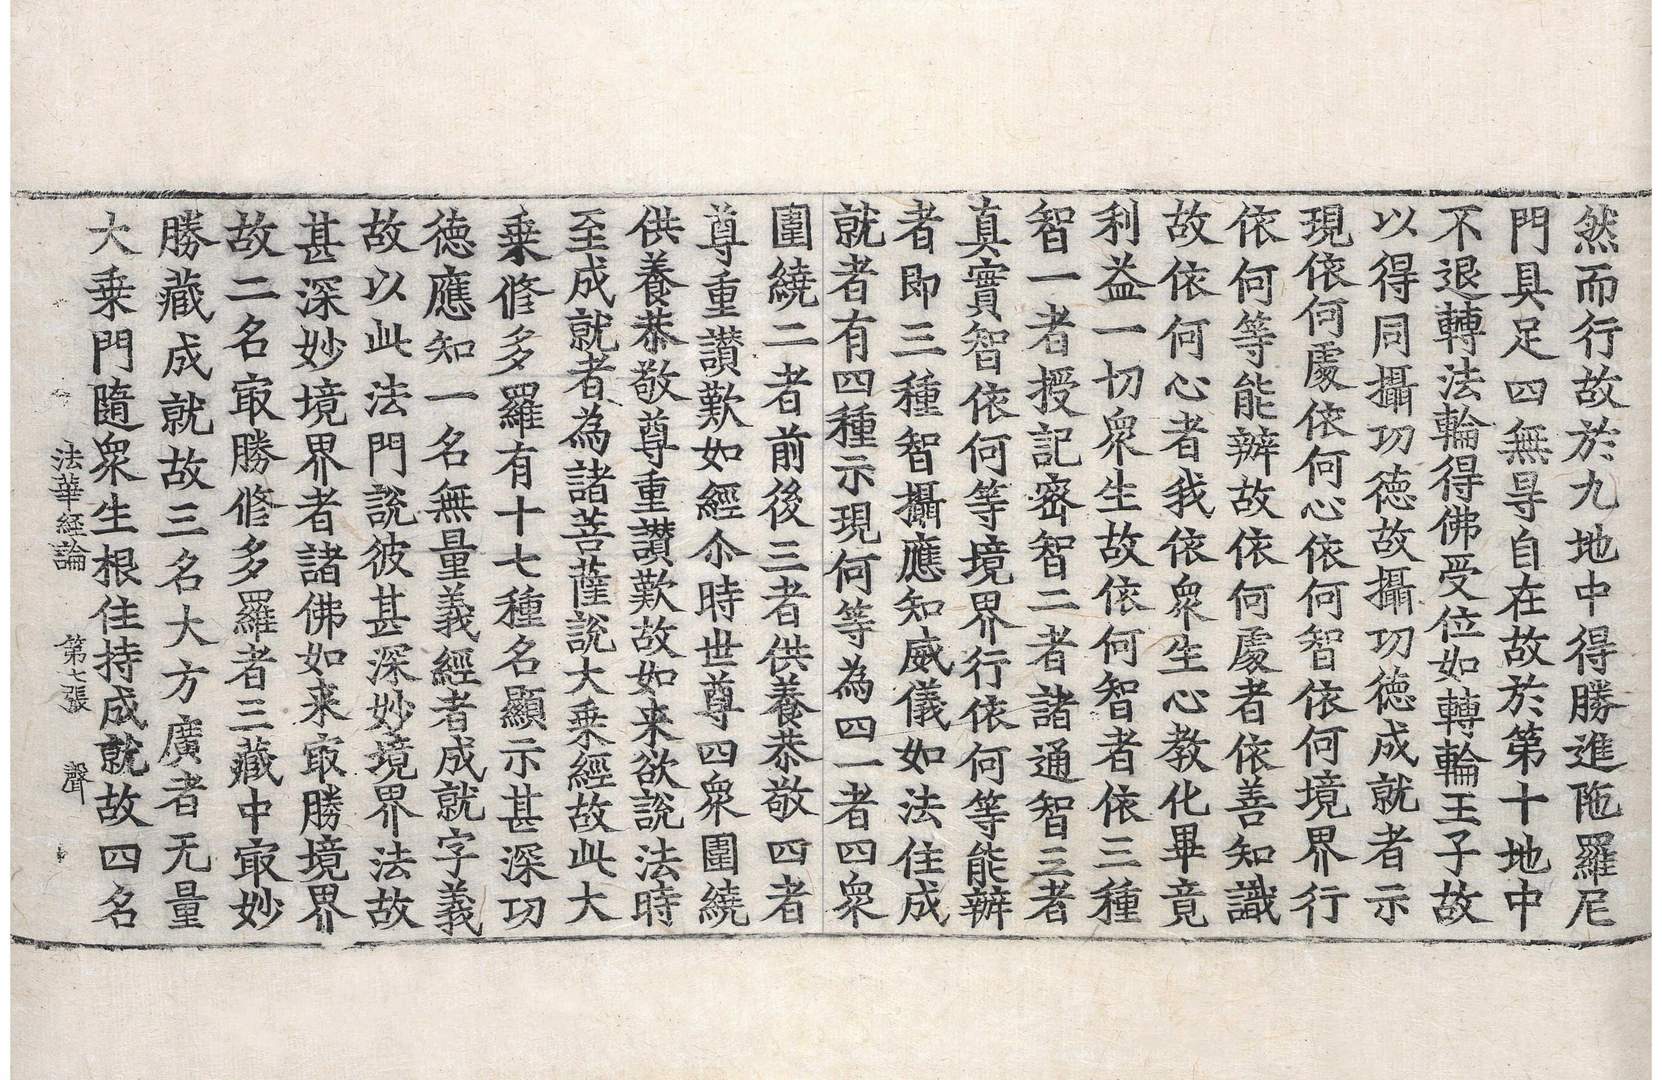 然而行故於九地中得勝進陁羅尼
門具足四無㝵自在故於第十地中
不退轉法輪得佛受位如轉輪王子故
以得同攝功德故攝功德成就者示
現依何處依何心依何智依何境界行
依何等能辦故依何處者依善知識
故依何心者我依衆生心教化畢竟
利益一切衆生故依何智者依三種
智一者授記密智二者諸通智三者
真實智依何等境界行依何等能辦
者即三種智智攝應知威儀如法住成
就者有四種示現何等為四一者四衆
圍繞二者前後三者供養恭敬四者
尊重讃歎如經尒時世尊四衆圍繞
供養恭敬尊重讃歎故如来欲說法時
至成就者為諸菩薩說大乗經故此大
乗修多羅有十七種名顯示甚深功
德應知一名無量義經者成就字義
故以此法門說彼甚深妙境界法故
甚深妙境界者諸佛如来㝡勝境界
故二名㝡勝修多羅者三藏中㝡妙
勝藏成就故三名大方廣者无量
大乗門隨衆生根住持成就故四名
法華經論 第七張 聲